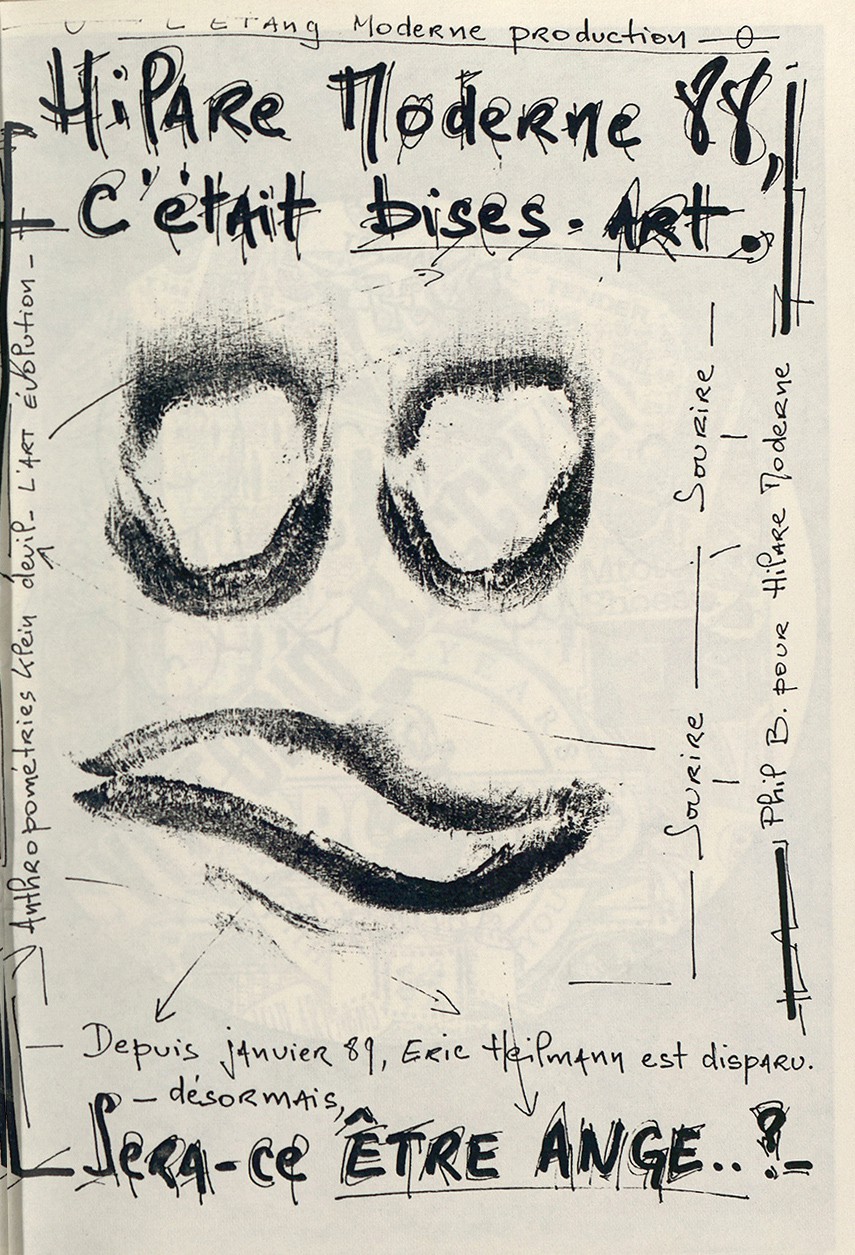 L'ETAng Moderne production
HilARe Moderne 88,
C'étAit bises. ARt.
Anthropométries Klein devil_ L'ART évolution_
SOURIRE — SOURIRE
Phil B. pour HilARe Moderne
Depuis jAnvieR 89, ERic HeilmAnn est dispARu.
— désoRMAis,
SeRA-ce ÊTRE ANGE..?